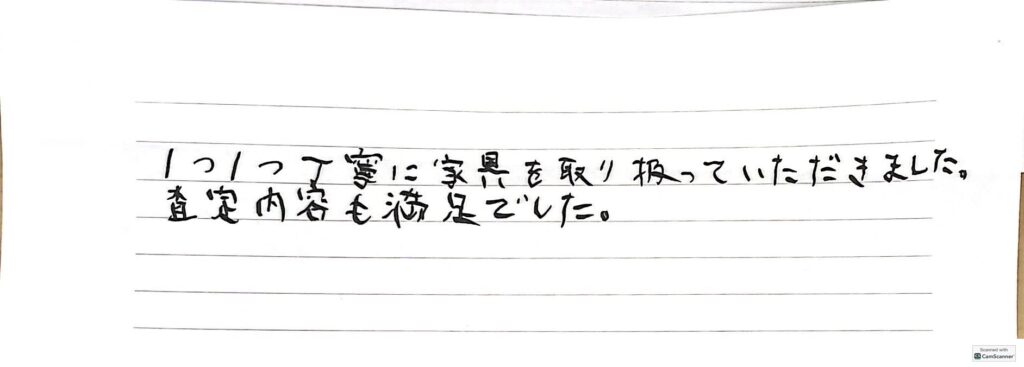 1つ1つ丁寧に家具を取り扱っていただきました。
査定内容も満足でした。
Scanned with
CamScanner